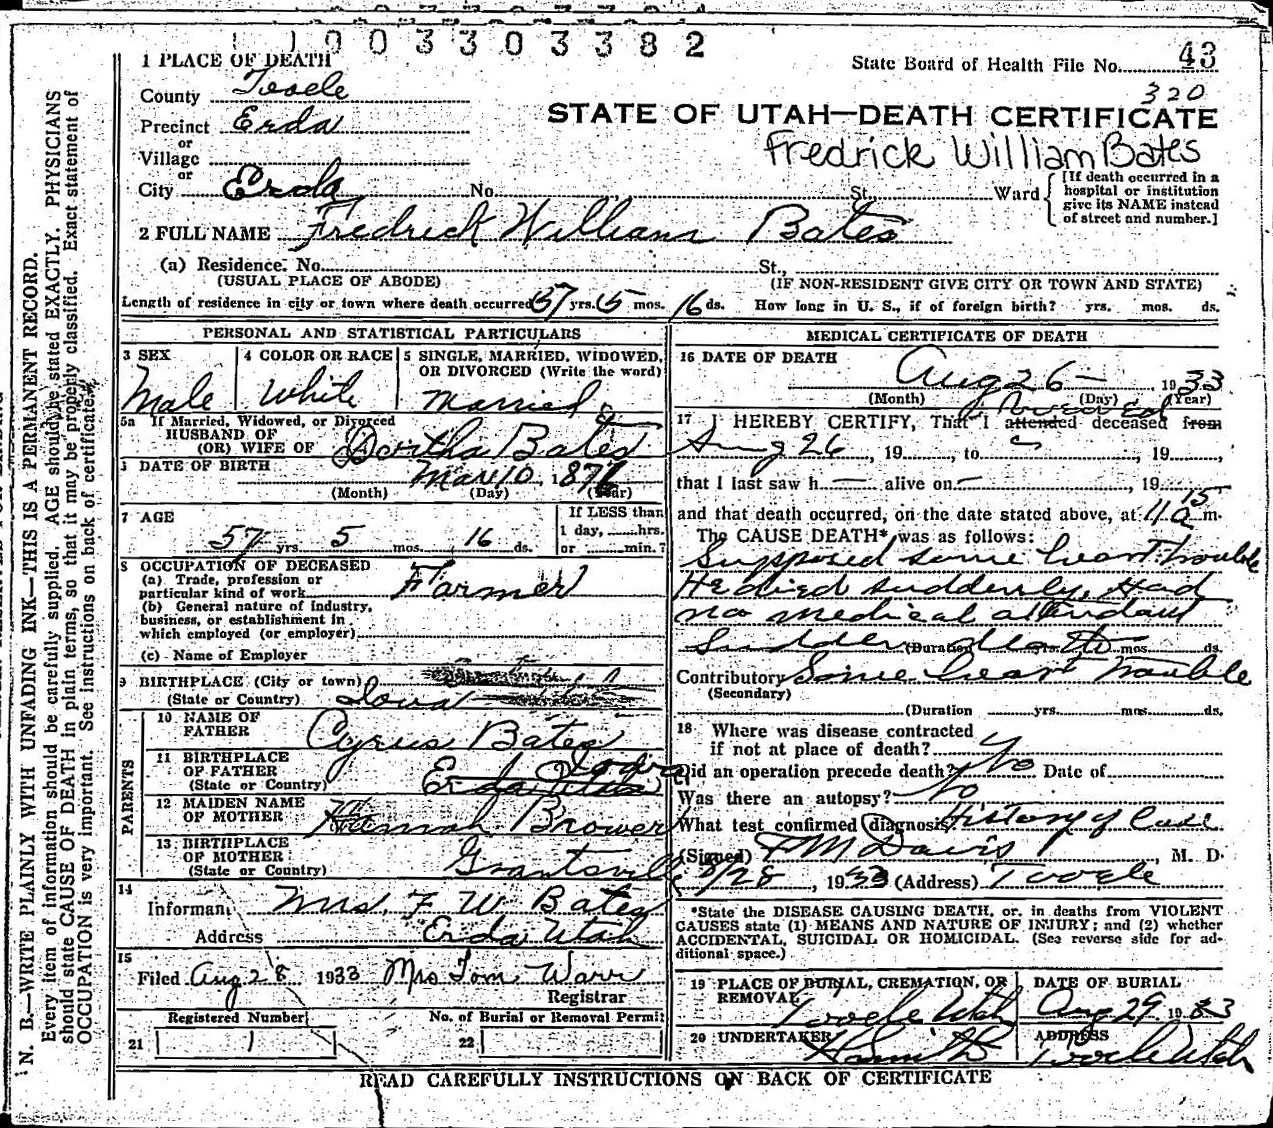 1003303382
1 PLACE OF DEATH
State Board of Health File No. 43
County Tooele
320
STATE OF UTAH—DEATH CERTIFICATE
Precinct Erda
or
Village
Fredrick William Bates
or
City Erda No. St. Ward
[If death occurred in a
hospital or institution
give its NAME instead
of street and number.]
2 FULL NAME Fredrick William Bates
(a) Residence. No. St.,
(USUAL PLACE OF ABODE) (IF NON-RESIDENT GIVE CITY OR TOWN AND STATE)
Length of residence in city or town where death occurred 57 yrs. 5 mos. 16 ds. How long in U. S., if of foreign birth? yrs. mos. ds.
PERSONAL AND STATISTICAL PARTICULARS
3 SEX 4 COLOR OR RACE 5 SINGLE, MARRIED, WIDOWED,
OR DIVORCED (Write the word)
Male White Married
5a If Married, Widowed, or Divorced
HUSBAND OF
(OR) WIFE OF Dortha Bates
6 DATE OF BIRTH Mar 10, 1876
(Month) (Day) (Year)
7 AGE If LESS than
57 yrs. 5 mos. 16 ds. 1 day, hrs.
or min.?
8 OCCUPATION OF DECEASED
(a) Trade, profession or
particular kind of work Farmer
(b) General nature of Industry,
business, or establishment in
which employed (or employer)
(c) Name of Employer
9 BIRTHPLACE (City or town)
(State or Country) Iowa
PARENTS
10 NAME OF
FATHER Cyrus Bates
11 BIRTHPLACE
OF FATHER
(State or Country) Erda Utah
12 MAIDEN NAME
OF MOTHER Hannah Brower
13 BIRTHPLACE
OF MOTHER
(State or Country) Grantsville
14
Informant Mrs. F W Bates
Address Erda Utah
15
Filed Aug 28 1933 Mrs Tom Warr
Registrar
Registered Number No. of Burial or Removal Permit
21 1 22
MEDICAL CERTIFICATE OF DEATH
16 DATE OF DEATH
Aug 26 — 1933
(Month) (Day) (Year)
17 I HEREBY CERTIFY, That I attended deceased from
Aug 26, 19, to, 19
that I last saw h— alive on —, 19
and that death occurred, on the date stated above, at 11 15 a m.
The CAUSE DEATH* was as follows:
Supposed some heart trouble
He died suddenly. Had
no medical attendant
Sudden death (Duration yrs. mos. ds.
Contributory Some heart trouble
(Secondary)
(Duration yrs. mos. ds.
18 Where was disease contracted
if not at place of death?
Did an operation precede death? No Date of
Was there an autopsy? No
What test confirmed diagnosis History of Case
(Signed) F M Davis, M. D.
8/28, 1933 (Address) Tooele
*State the DISEASE CAUSING DEATH, or, in deaths from VIOLENT
CAUSES state (1) MEANS AND NATURE OF INJURY; and (2) whether
ACCIDENTAL, SUICIDAL OR HOMICIDAL. (See reverse side for ad-
ditional space.)
19 PLACE OF BURIAL, CREMATION, OR
REMOVAL Tooele Utah
DATE OF BURIAL
Aug 29 1933
20 UNDERTAKER
ADDRESS
Tooele Utah
READ CAREFULLY INSTRUCTIONS ON BACK OF CERTIFICATE
N. B.—WRITE PLAINLY WITH UNFADING INK—THIS IS A PERMANENT RECORD.
Every item of information should be carefully supplied. AGE should be stated EXACTLY. PHYSICIANS
should state CAUSE OF DEATH in plain terms, so that it may be properly classified. Exact statement of
OCCUPATION is very important. See instructions on back of certificate.